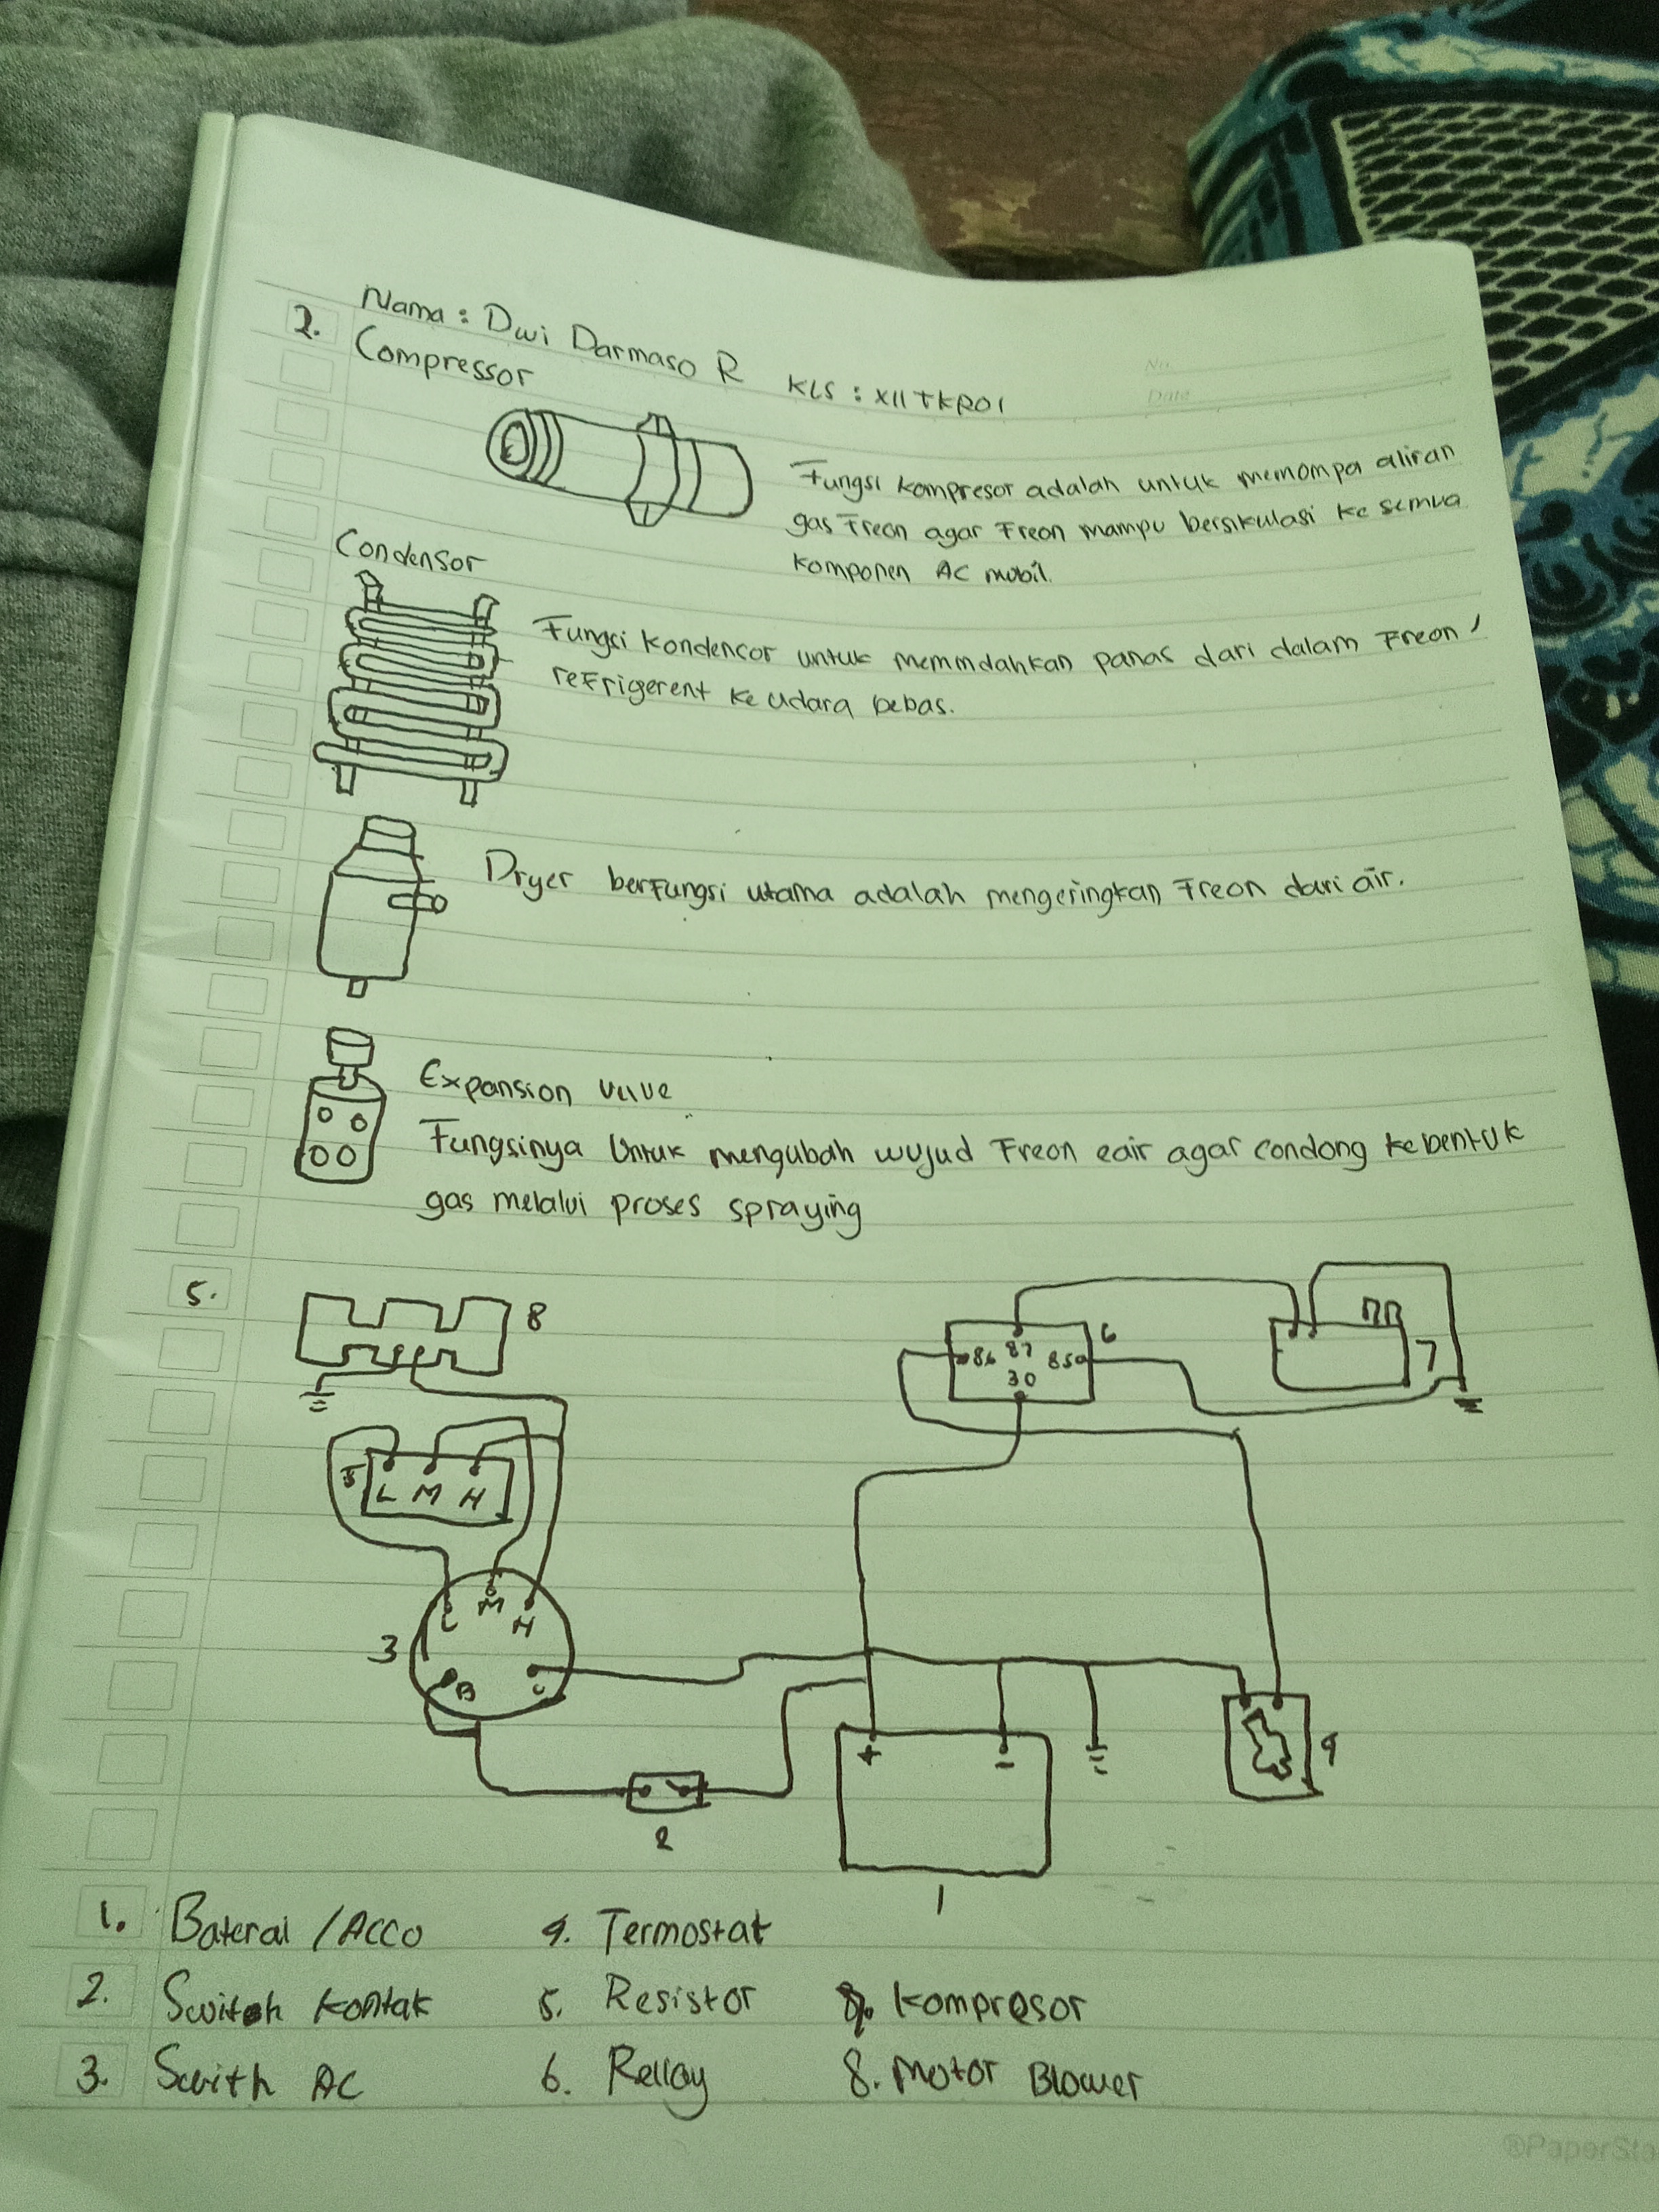 Nama : Dwi Darmaso R
KLS : XII TKRO1
No.
Date
2. Compressor
Fungsi kompresor adalah untuk memompa aliran
gas Freon agar Freon mampu bersikulasi ke semua
komponen AC mobil.
Condensor
Fungsi kondencor untuk memindahkan panas dari dalam Freon /
refrigerent ke udara bebas.
Dryer berfungsi utama adalah mengeringkan Freon dari air.
Expansion valve
Fungsinya Untuk mengubah wujud Freon cair agar condong kebentuk
gas melalui proses spraying
5.
8
6
86 87 85
30
7
5
L M H
L M H
3
B C
2
+ -
1
4
1. Baterai / ACCO
4. Termostat
2. Switch Kontak
5. Resistor
7. Kompresor
3. Swith AC
6. Rellay
8. Motor Blower